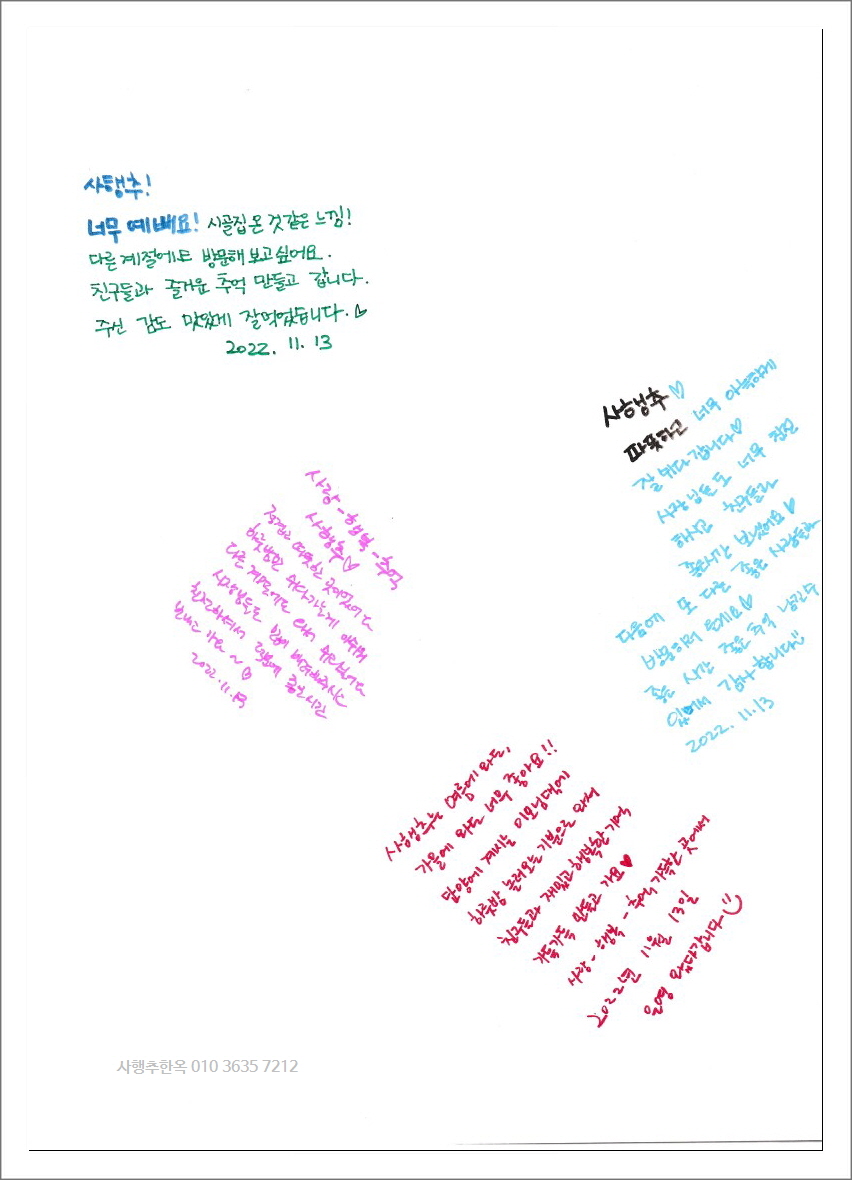 사행추!
너무 예뻐요! 시골집 온 것같은 느낌!
다른 계절에도 방문해 보고싶어요.
친구들과 즐거운 추억 만들고 갑니다.
주신 감도 맛있게 잘먹었습니다.♡
2022. 11. 13
사행추♡
따뜻하고 너무 아늑하게
잘 쉬다 갑니다♡
사장님들도 너무 친절
하시고 친구들과
좋은시간 보냈어요♡
다음에 또 다른 좋은 사람들과
방문하러 올게요♡
좋은 시간 좋은 추억 남길수
있어서 감사합니다
2022. 11. 13
사랑-행복-추억
사행추♡
정겹고 따뜻한 곳이었어요
하룻밤만 쉬다가는게 아쉬워
다른 계절에도 와서
사장님들도 반겨주시고
친절하셔서 덕분에 좋은시간
보내고 가요~♡
2022.11.13
사행추는 여름에 와도,
가을에 와도 너무 좋아요!!
단양에 계시는 이모님댁에
하룻밤 놀러오는 기분으로 와서
친구들과 재밌고 행복한 기억
가득가득 만들고 가요♥
사랑-행복-추억 가득한 곳에서
2022년 11월 13일
은영 왔다갑니다
사행추한옥 010 3635 7212